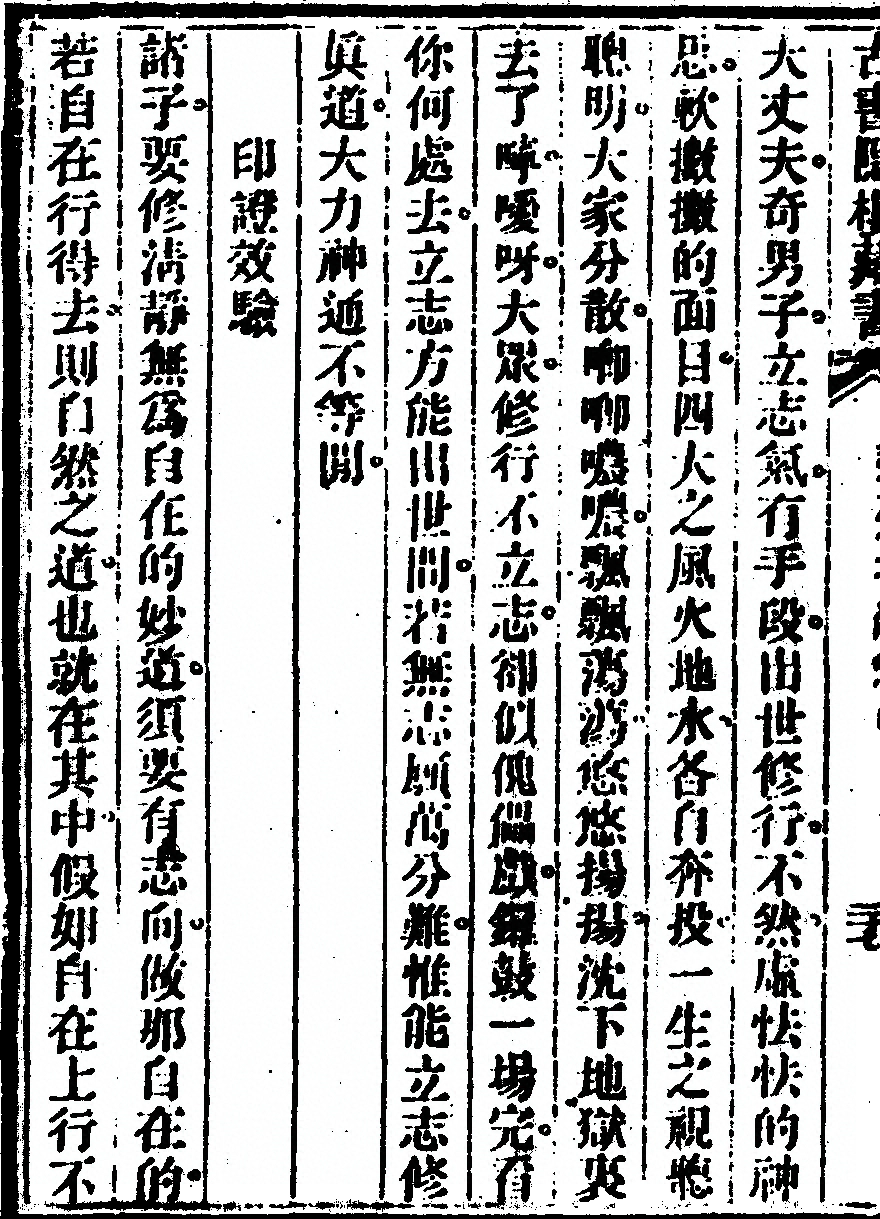 大丈夫奇男子立志氣有手段出世修行不然虛怯怯的神
思軟撒撒的面目四大之風火地水各自奔投一生之視聽
聰明大家分散啣啣噥噥飄飄蕩蕩悠悠揚揚沈下地獄裏
去了啐噯呀大眾修行不立志卻似傀儡戲鑼鼓一場完看
你何處去立志方能出世間若無志願萬分難惟能立志修
眞道大力神通不等閒
印證效驗
諸子要修清靜無爲自在的妙道須要有志向做那自在的
若自在行得去則自然之道也就在其中假如自在上行不